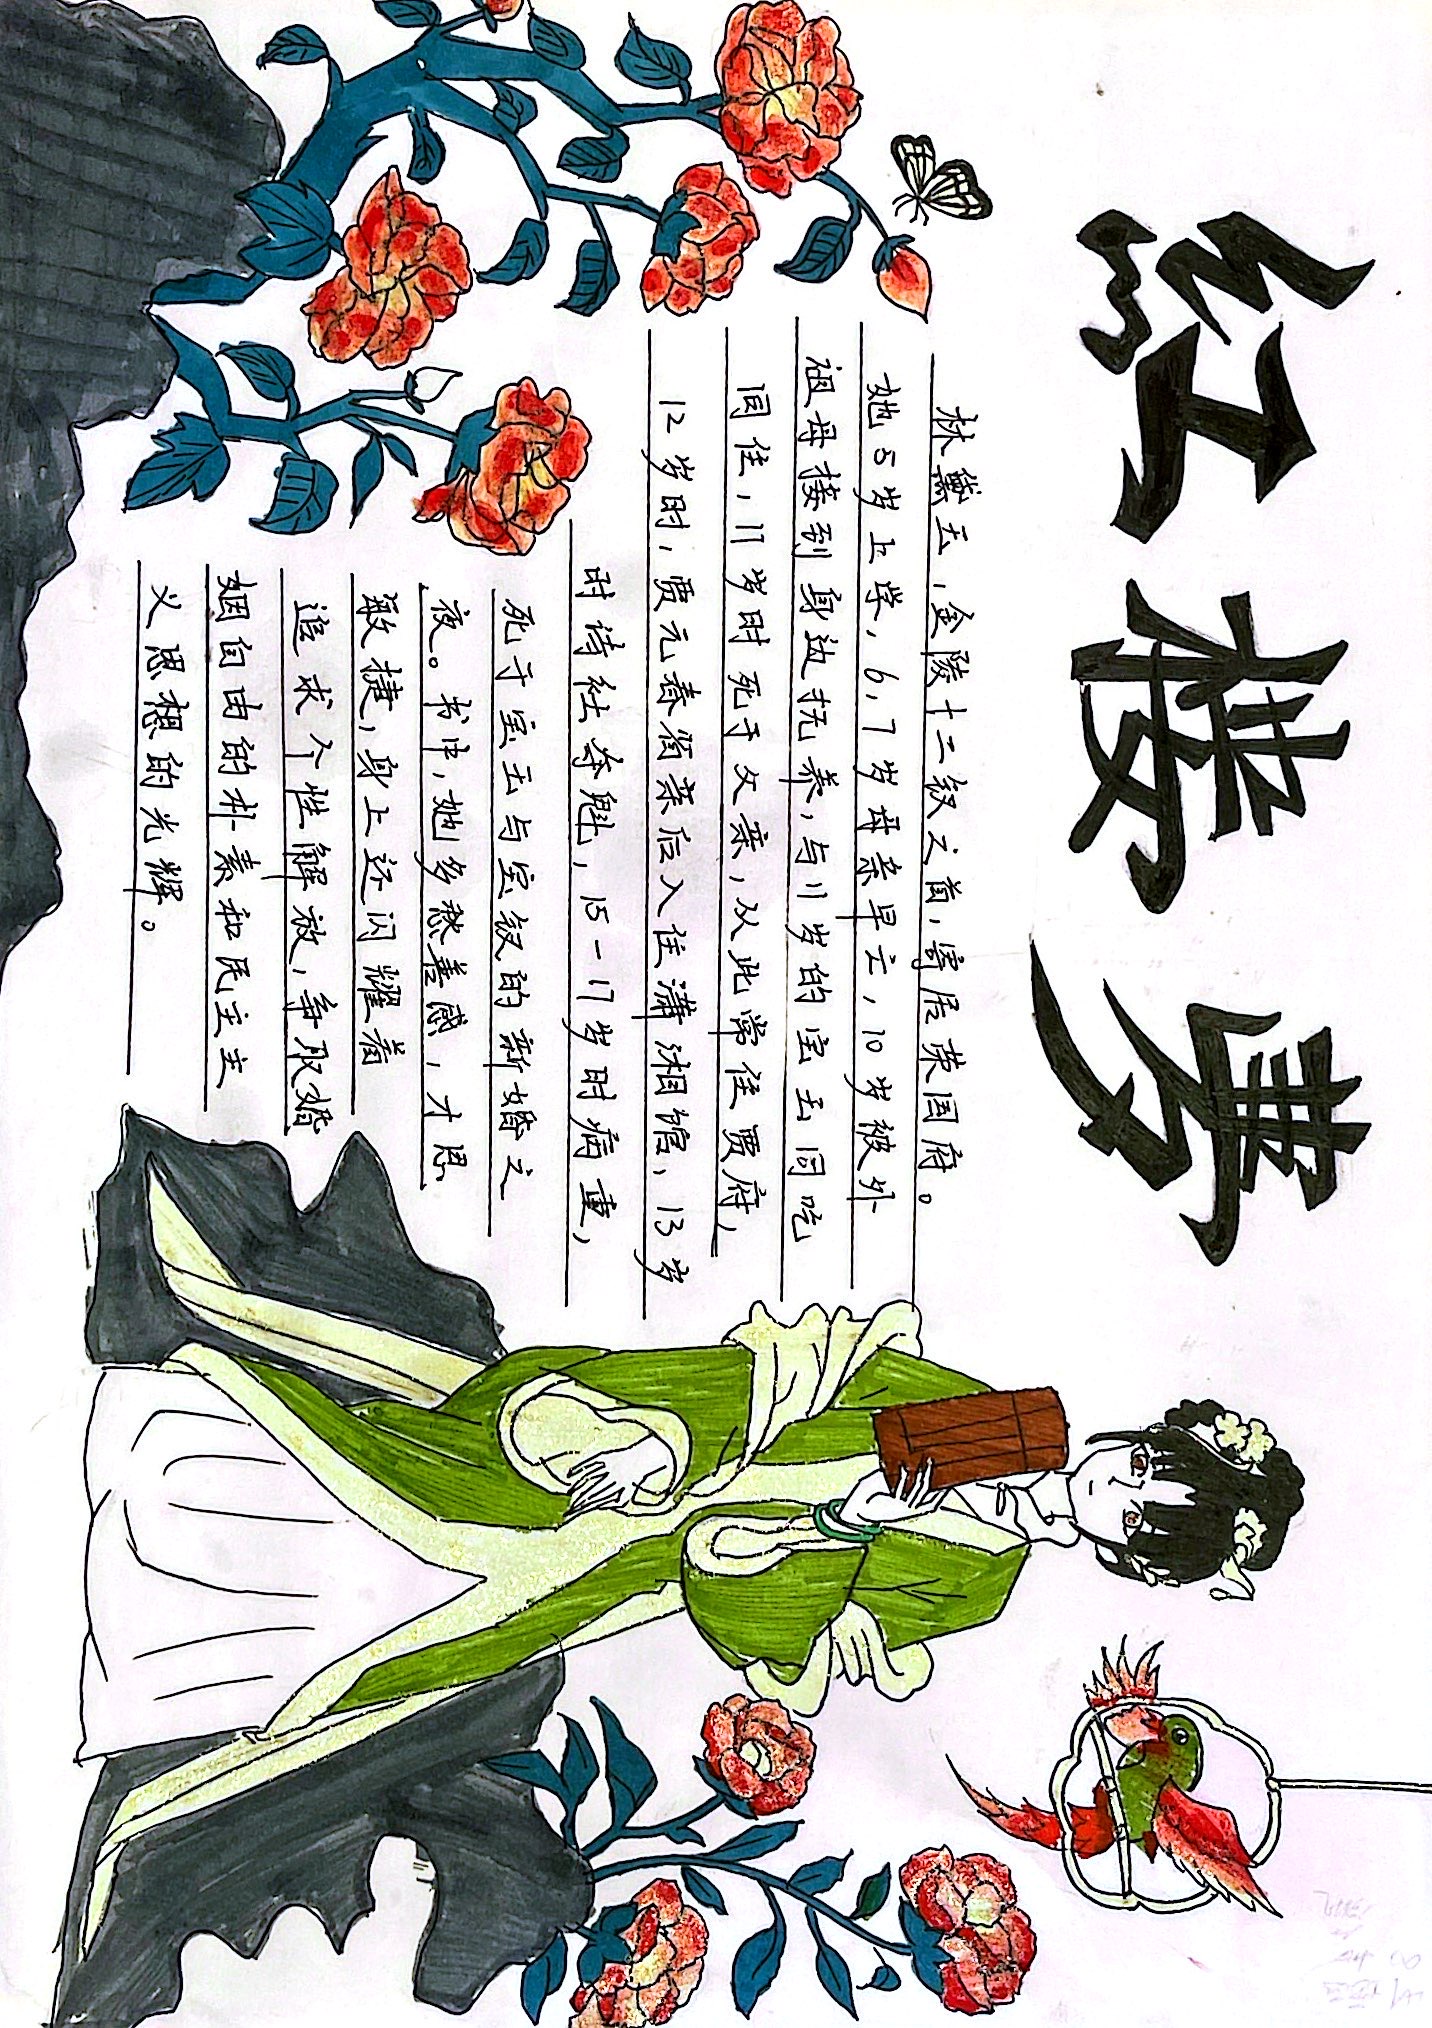 红楼梦
林黛玉，金陵十二钗之首，寄居荣国府。
她5岁上学，6，7岁母亲早亡，10岁被外
祖母接到身边抚养，与11岁的宝玉同吃
同住，11岁时死于父亲，从此常住贾府，
12岁时，贾元春省亲后入住潇湘馆，13岁
时诗社夺魁，15-17岁时病重，
死于宝玉与宝钗的新婚之
夜。书中，她多愁善感，才思
敏捷，身上还闪耀着
追求个性解放，争取婚
姻自由的朴素和民主主
义思想的光辉。